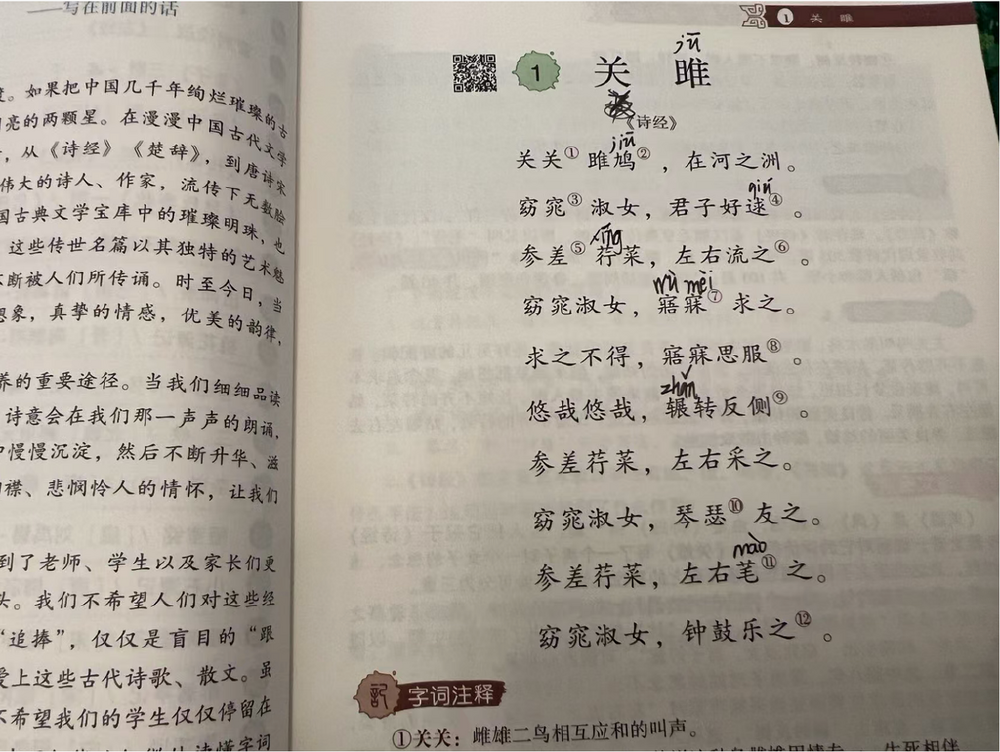 ——写在前面的话
度。如果把中国几千年绚烂璀璨的古
亮的两颗星。在漫漫中国古代文学
,从《诗经》《楚辞》,到唐诗宋
伟大的诗人、作家,流传下无数脍
国古典文学宝库中的璀璨明珠,也
这些传世名篇以其独特的艺术魅
不断被人们所传诵。时至今日,当
想象,真挚的情感,优美的韵律,
养的重要途径。当我们细细品读
诗意会在我们那一声声的朗诵,
中慢慢沉淀,然后不断升华、滋
襟、悲悯怜人的情怀,让我们
到了老师、学生以及家长们更
头。我们不希望人们对这些经
“追捧”,仅仅是盲目的“跟
爱上这些古代诗歌、散文。虽
不希望我们的学生仅仅停留在
读懂字词
1 关雎
jū
1 关雎
《诗经》
jiū
关关① 雎鸠②,在河之洲。
qiú
窈窕③ 淑女,君子好逑④。
xìng
参差⑤ 荇菜,左右流之⑥。
wù mèi
窈窕淑女,寤寐⑦ 求之。
求之不得,寤寐思服⑧。
zhǎn
悠哉悠哉,辗转反侧⑨。
参差荇菜,左右采之。
窈窕淑女,琴瑟⑩ 友之。
mào
参差荇菜,左右芼⑪ 之。
窈窕淑女,钟鼓乐之⑫。
記 字词注释
①关关:雌雄二鸟相互应和的叫声。